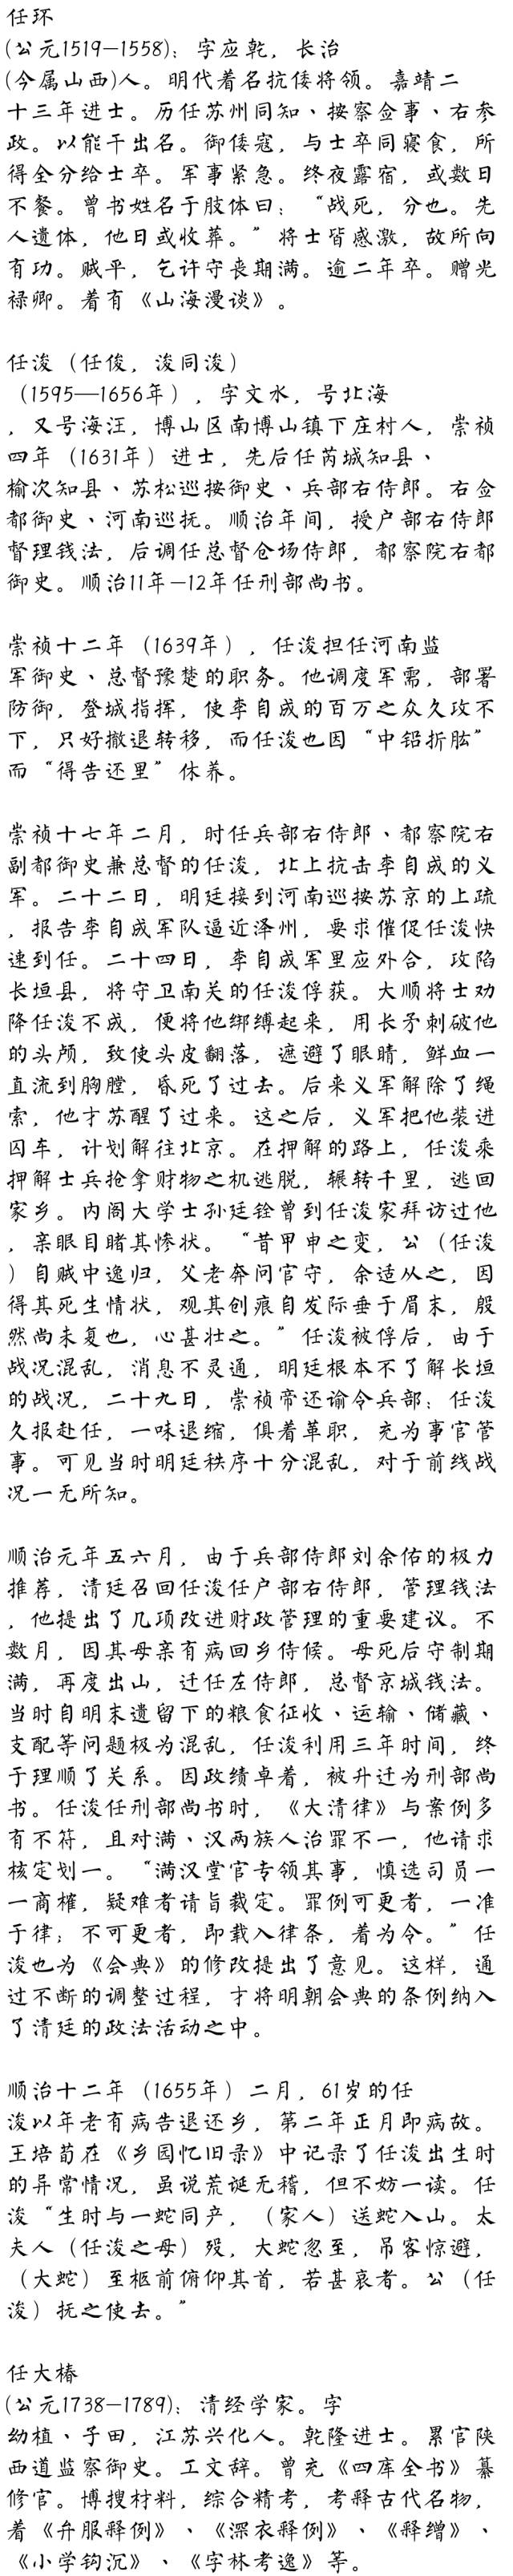 任环
(公元1519—1558)：字应乾，长治
(今属山西)人。明代着名抗倭将领。嘉靖二
十三年进士。历任苏州同知、按察佥事、右参
政。以能干出名。御倭寇，与士卒同寝食，所
得全分给士卒。军事紧急。终夜露宿，或数日
不餐。曾书姓名于肢体曰：“战死，分也。先
人遗体，他日或收葬。”将士皆感激，故所向
有功。贼平，乞许守丧期满。逾二年卒。赠光
禄卿。着有《山海漫谈》。

任浚（任俊，浚同浚）
（1595—1656年），字文水，号北海
，又号海汪，博山区南博山镇下庄村人，崇祯
四年（1631年）进士，先后任芮城知县、
榆次知县、苏松巡按御史、兵部右侍郎。右佥
都御史、河南巡抚。顺治年间，授户部右侍郎
督理钱法，后调任总督仓场侍郎，都察院右都
御史。顺治11年—12年任刑部尚书。

崇祯十二年（1639年），任浚担任河南监
军御史、总督豫楚的职务。他调度军需，部署
防御，登城指挥，使李自成的百万之众久攻不
下，只好撤退转移，而任浚也因“中铅折肱”
而“得告还里”休养。

崇祯十七年二月，时任兵部右侍郎、都察院右
副都御史兼总督的任浚，北上抗击李自成的义
军。二十二日，明廷接到河南巡按苏京的上疏
，报告李自成军队逼近泽州，要求催促任浚快
速到任。二十四日，李自成军里应外合，攻陷
长垣县，将守卫南关的任浚俘获。大顺将士劝
降任浚不成，便将他绑缚起来，用长矛刺破他
的头颅，致使头皮翻落，遮避了眼睛，鲜血一
直流到胸膛，昏死了过去。后来义军解除了绳
索，他才苏醒了过来。这之后，义军把他装进
囚车，计划解往北京。在押解的路上，任浚乘
押解士兵抢拿财物之机逃脱，辗转千里，逃回
家乡。内阁大学士孙廷铨曾到任浚家拜访过他
，亲眼目睹其惨状。“昔甲申之变，公（任浚
）自贼中逸归，父老奔问官守，余适从之，因
得其死生情状，观其创痕自发际垂于眉末，殷
然尚未复也，心甚壮之。”任浚被俘后，由于
战况混乱，消息不灵通，明廷根本不了解长垣
的战况，二十九日，崇祯帝还谕令兵部：任浚
久报赴任，一味退缩，俱着革职，充为事官管
事。可见当时明廷秩序十分混乱，对于前线战
况一无所知。

顺治元年五六月，由于兵部侍郎刘余佑的极力
推荐，清廷召回任浚任户部右侍郎，管理钱法
，他提出了几项改进财政管理的重要建议。不
数月，因其母亲有病回乡侍候。母死后守制期
满，再度出山，迁任左侍郎，总督京城钱法。
当时自明末遗留下的粮食征收、运输、储藏、
支配等问题极为混乱，任浚利用三年时间，终
于理顺了关系。因政绩卓着，被升迁为刑部尚
书。任浚任刑部尚书时，《大清律》与案例多
有不符，且对满、汉两族人治罪不一，他请求
核定划一。“满汉堂官专领其事，慎选司员一
一商榷，疑难者请旨裁定。罪例可更者，一准
于律；不可更者，即载入律条，着为令。”任
浚也为《会典》的修改提出了意见。这样，通
过不断的调整过程，才将明朝会典的条例纳入
了清廷的政法活动之中。

顺治十二年（1655年）二月，61岁的任
浚以年老有病告退还乡，第二年正月即病故。
王培荀在《乡园忆旧录》中记录了任浚出生时
的异常情况，虽说荒诞无稽，但不妨一读。任
浚“生时与一蛇同产，（家人）送蛇入山。太
夫人（任浚之母）殁，大蛇忽至，吊客惊避，
（大蛇）至柩前俯仰其首，若甚哀者。公（任
浚）抚之使去。”

任大椿
(公元1738—1789)：清经学家。字
幼植、子田，江苏兴化人。乾隆进士。累官陕
西道监察御史。工文辞。曾充《四库全书》纂
修官。博搜材料，综合精考，考释古代名物，
着《弁服释例》、《深衣释例》、《释缯》、
《小学钩沉》、《字林考逸》等。